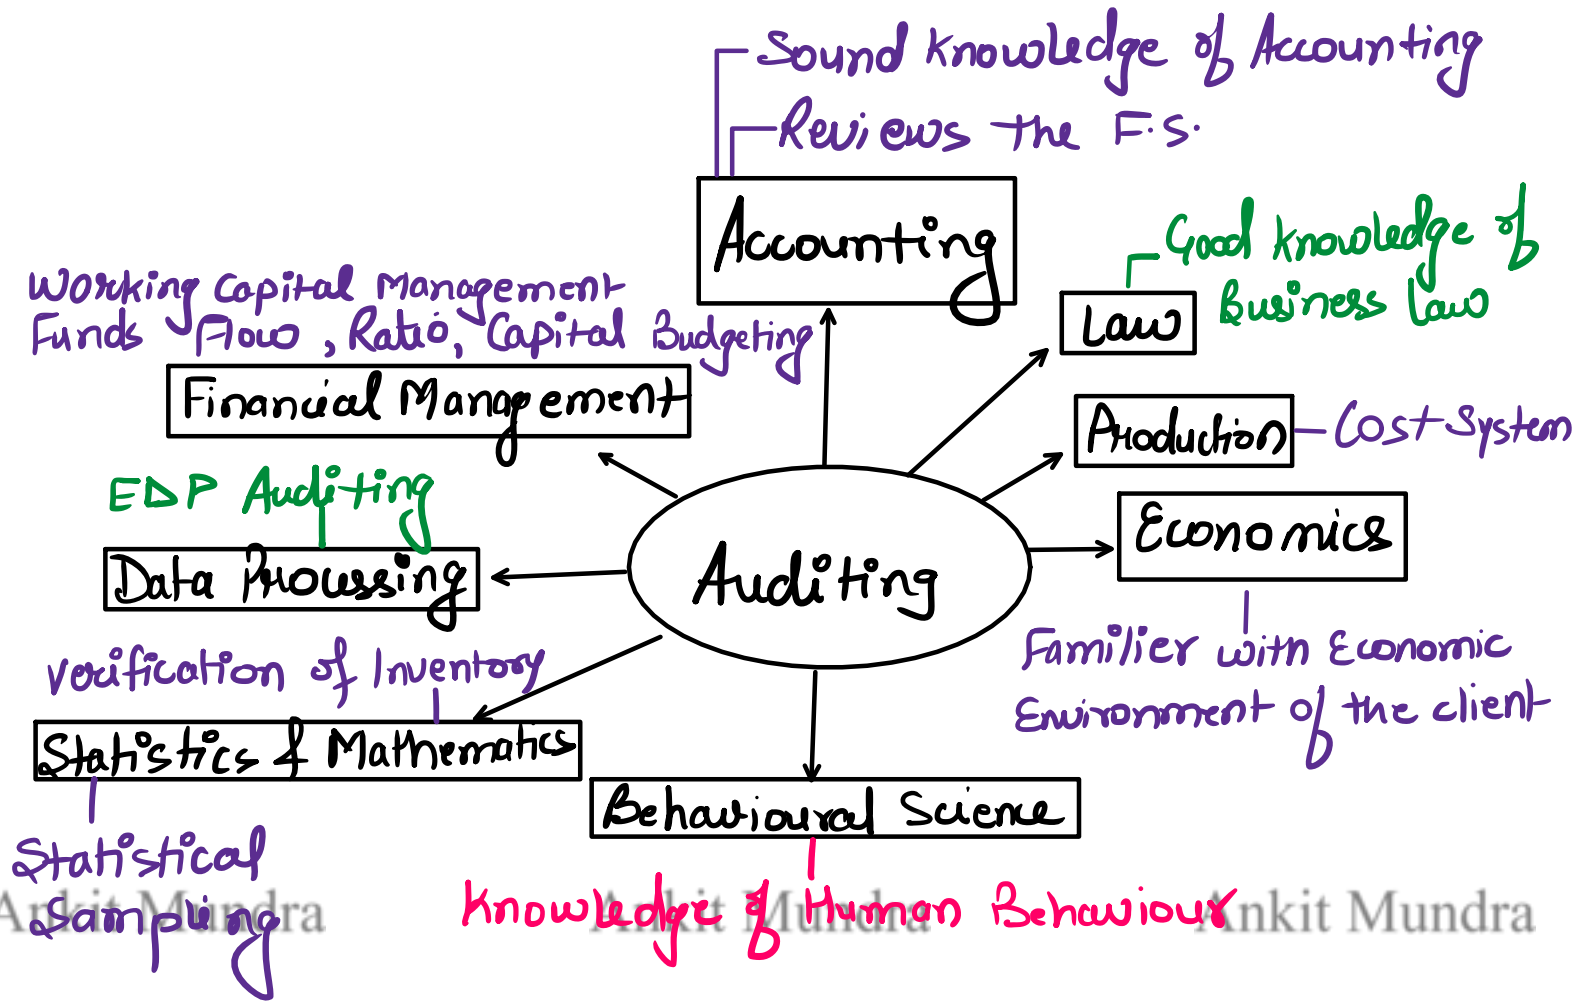 Sound Knowledge of Accounting
Reviews the F.S.
Accounting
Good Knowledge of
Business Law
Law
Working Capital Management
Funds Flow, Ratio, Capital Budgeting
Financial Management
Production
Cost System
EDP Auditing
Data Processing
Auditing
Economics
Familier with Economic
Environment of the client
Verification of Inventory
Statistics & Mathematics
Statistical
Sampling
Behavioural Science
Knowledge of Human Behaviour
Ankit Mundra
Ankit Mundra
Ankit Mundra